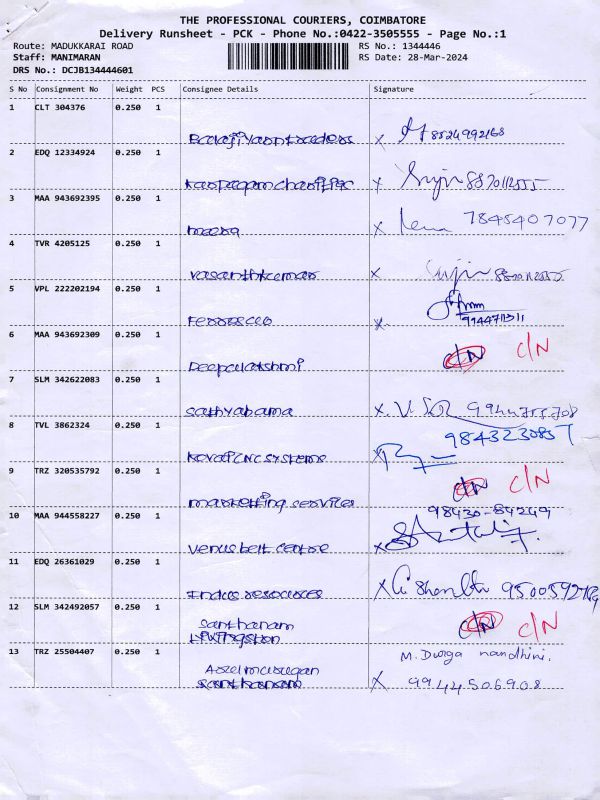 THE PROFESSIONAL COURIERS, COIMBATORE
Delivery Runsheet - PCK - Phone No.:0422-3505555 - Page No.:1
Route: MADUKKARAI ROAD RS No.: 1344446
Staff: MANIMARAN RS Date: 28-Mar-2024
DRS No.: DCJB134444601
S No Consignment No Weight PCS Consignee Details Signature
1 CLT 304376 0.250 1
x 8524992168
2 EDQ 12334924 0.250 1
x
3 MAA 943692395 0.250 1
meera x 7845407077
4 TVR 4205125 0.250 1
vasanthkumar x
5 VPL 222202194 0.250 1
x
6 MAA 943692309 0.250 1
Deepalakshmi C/N C/N
7 SLM 342622083 0.250 1
sathyabama x
8 TVL 3862324 0.250 1
Kovai CNC systems x 9843230857
9 TRZ 320535792 0.250 1
marketting services C/N C/N
10 MAA 944558227 0.250 1
98430-84249
venus belt centre x
11 EDQ 26361029 0.250 1
Indus resources x
12 SLM 342492057 0.250 1
santhanam C/N C/N
13 TRZ 25504407 0.250 1
M. Durga nandhini.
x 9944506908